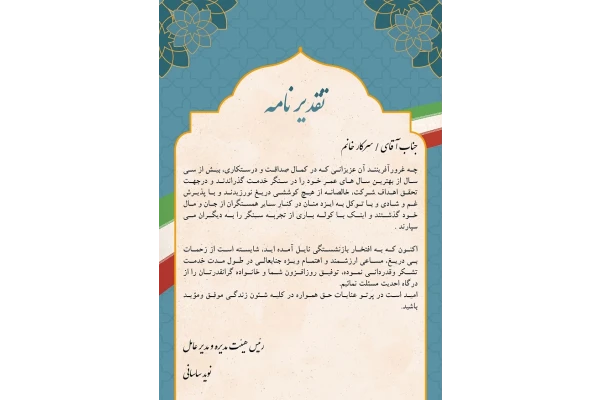 تقدیر نامه
جناب آقای / سرکار خانم
چه غرورآفریننـد آن عزیزانـی کـه در کمـال صداقـت و درسـتکاری، بیـش از سـی
سـال از بهتریـن سـال هـای عمـر خـود را در سـنگر خدمـت گذراندنـد و درجهـت
تحقـق اهـداف شـرکت، خالصانـه از هیـچ کوششـی دریـغ نورزیدنـد و بـا پذیـرش
غـم و شـادی و بـا تـوکل بـه ایـزد منـان در کنـار سـایر همسـنگران از جـان و مـال
خـود گذشـتند و اینـک بـا کولـه بـاری از تجربـه سـنگر را بـه دیگـران مـی
سپارند .
اکنـون کـه بـه افتخـار بازنشسـتگی نایـل آمـده ایـد، شایسـته اسـت از زحمـات
بـی دریـغ، مسـاعی ارزشـمند و اهتمـام ویـژه جنابعالـی در طـول مـدت خدمـت
تشـکر وقدردانـی نمـوده، توفیـق روزافـزون شـما و خانـواده گرانقدرتـان را از
درگاه احدیت مسئلت نمائیم.
امیـد اسـت در پرتـو عنایـات حـق همـواره در کلیـه شـئون زندگـی موفـق ومؤیـد
باشید.
رئیس هیئت مدیره و مدیر عامل
نوید ساسانی